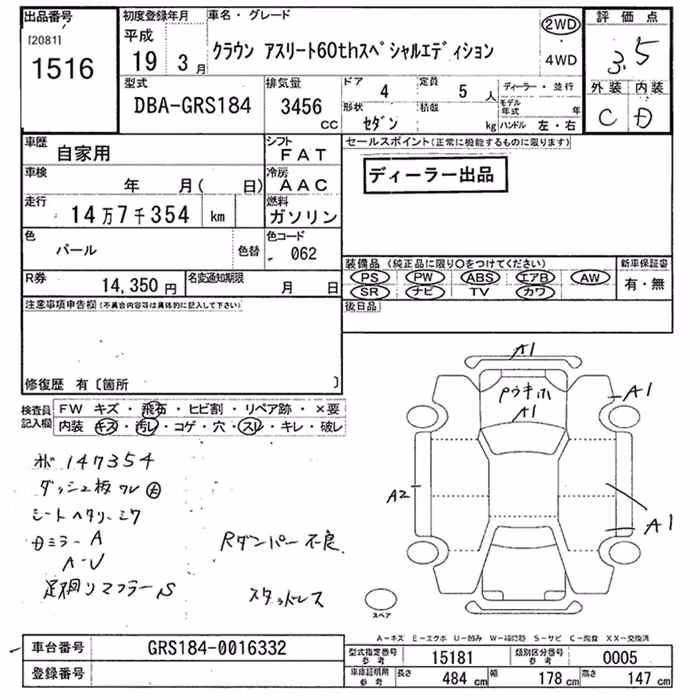 出品番号
[2081]
1516
初度登録年月
平成
19 3月
車名・グレード
クラウン アスリート60thスペシャルエディション
2WD
・
4WD
評価点
3.5
外装 内装
C D
型式
DBA-GRS184
排気量
3456
CC
ドア
4
定員
5 人
形状
セダン
積載
kg
ディーラー・並行
モデル年式 年
ハンドル 左・右
車歴
自家用
シフト
FAT
車検
年 月( 日)
冷房
AAC
走行
14万7千354 km
燃料
ガソリン
色
パール
色替
色コード
062
R券
14,350 円
名変通知期限
月 日
セールスポイント(正常に機能するものに限ります)
ディーラー出品
装備品(純正品に限り○をつけてください)
PS PW ABS エアB AW
SR ナビ TV カワ
新車保証書
有・無
後日品
注意事項申告欄(不具合内容等は具体的に記入して下さい)
修復歴 有〔箇所 〕
検査員記入欄
FW キズ・飛石・ヒビ割・リペア跡・×要
内装 キズ・汚レ・コゲ・穴・スレ・キレ・破レ
147354
ダッシュ板ワレ
シートヘタリ
ミラー A
足廻リマフラーS
Rダンパー不良
スタッドレス
A1
A1
A1
A2
A1
スペア
A-キズ E-エクボ U-凹み W-補修跡 S-サビ C-腐食 XX-交換済
車台番号
GRS184-0016332
登録番号
型式指定番号
参考
15181
類別区分番号
参考
0005
車庫証明用
参考
長さ
484 cm
幅
178 cm
高さ
147 cm